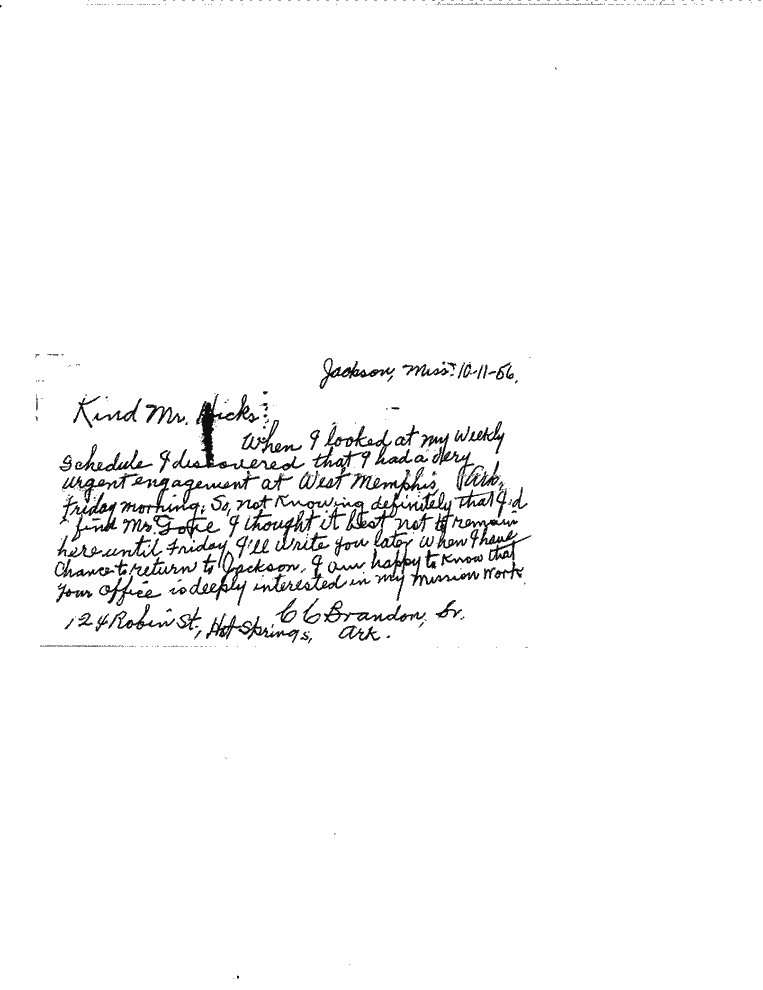 Jackson, Miss. 10-11-56.
Kind Mr. Hicks:
When I looked at my Weekly
Schedule I discovered that I had a very
urgent engagement at West Memphis, Ark.
Friday morning. So, not Knowing definitely that I'd
find Mr. I thought it best not to remain
here until Friday. I'll write you later when I have
Chance to return to Jackson. I am happy to Know that
your office is deeply interested in my Mission Work.
C C Brandon, Sr.
124 Robin St., Hot Springs, Ark.